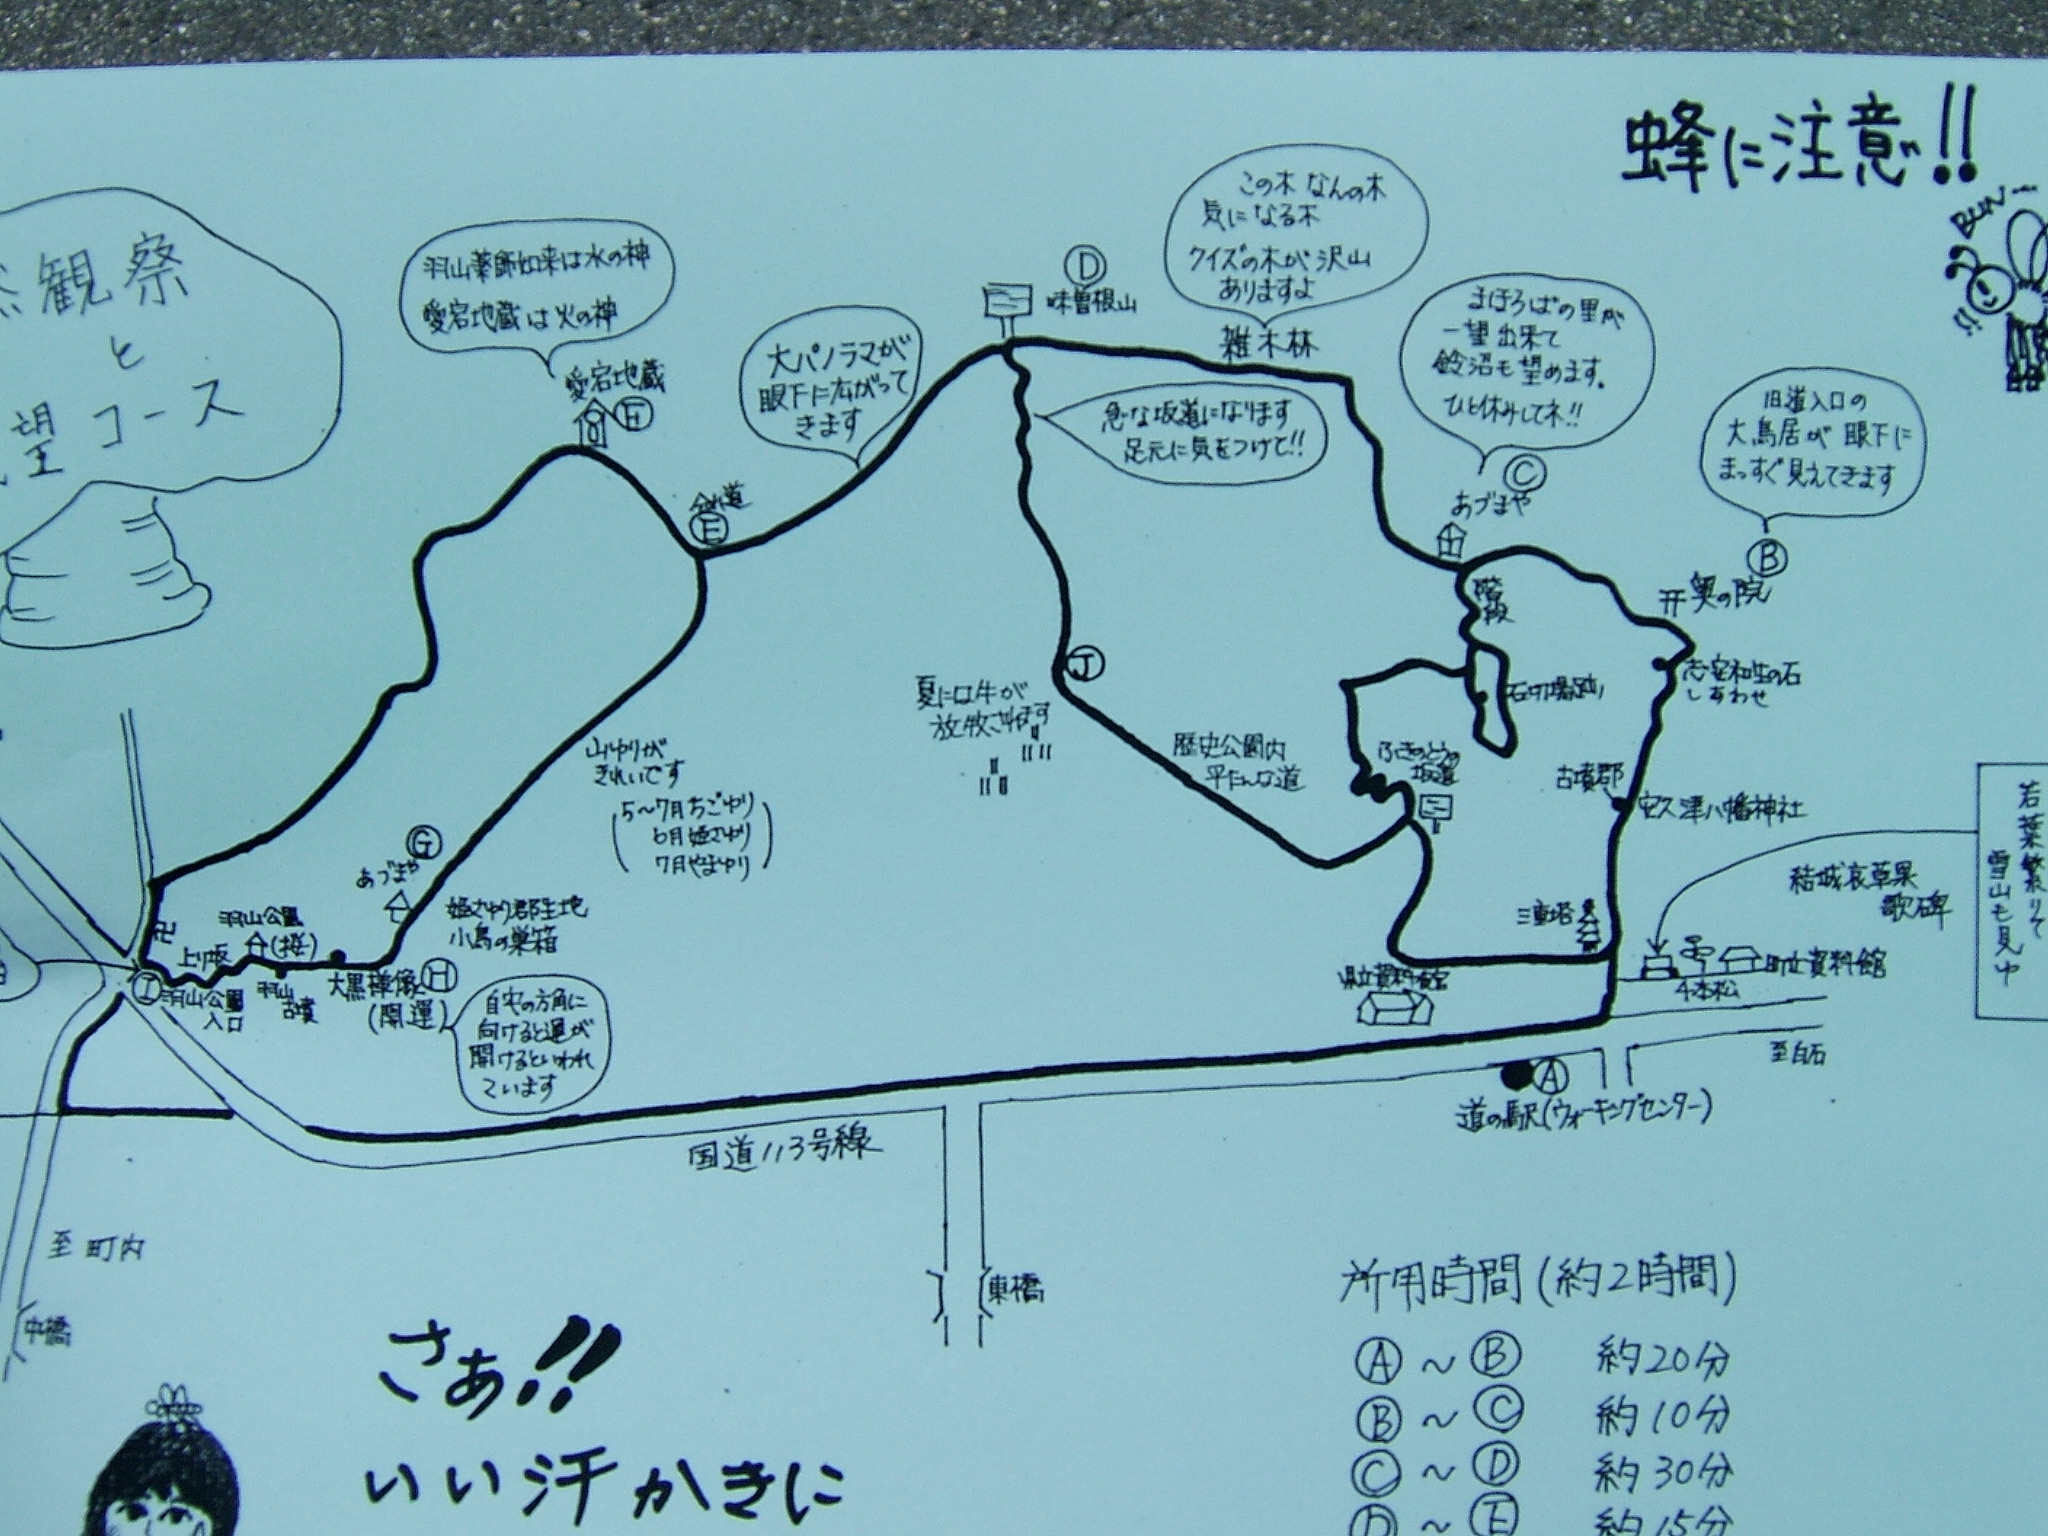 蜂に注意!!
BUN!
観察
と
望コース
羽山薬師如来は水の神
愛宕地蔵は火の神
愛宕地蔵
F
大パノラマが
眼下に広がって
きます
D
味噌根山
この木なんの木
気になる木
クイズの木が沢山
ありますよ
雑木林
まほろばの里が
一望出来て
鈴沼も望めます。
ひと休みしてネ!!
C
あづまや
旧道入口の
大鳥居が眼下に
まっすぐ見えてきます
B
奥の院
急な坂道になります
足元に気をつけて!!
分れ道
E
階段
J
夏には牛が
放牧されます
歴史公園内
平たんな道
石切場跡
ふきのとうの
坂道
志安和生の石
しあわせ
古墳郡
安久津八幡神社
三重塔
結城哀草果
歌碑
若葉繁りて
雪山も見ゆ
町立資料館
4本松
県立資料館
至白石
A
道の駅(ウォーキングセンター)
山ゆりが
きれいです
(5〜7月ちごゆり
6月姫さゆり
7月やまゆり)
G
あづまや
姫さゆり郡生地
小鳥の巣箱
卍
羽山公園
(桜)
上り坂
I
羽山公園
入口
羽山
古墳
大黒様像
(開運)
H
自宅の方角に
向けると運が
開けるといわれ
ています
国道113号線
至町内
中橋
東橋
さぁ!!
いい汗かきに
所用時間(約2時間)
A〜B 約20分
B〜C 約10分
C〜D 約30分
D〜E 約15分